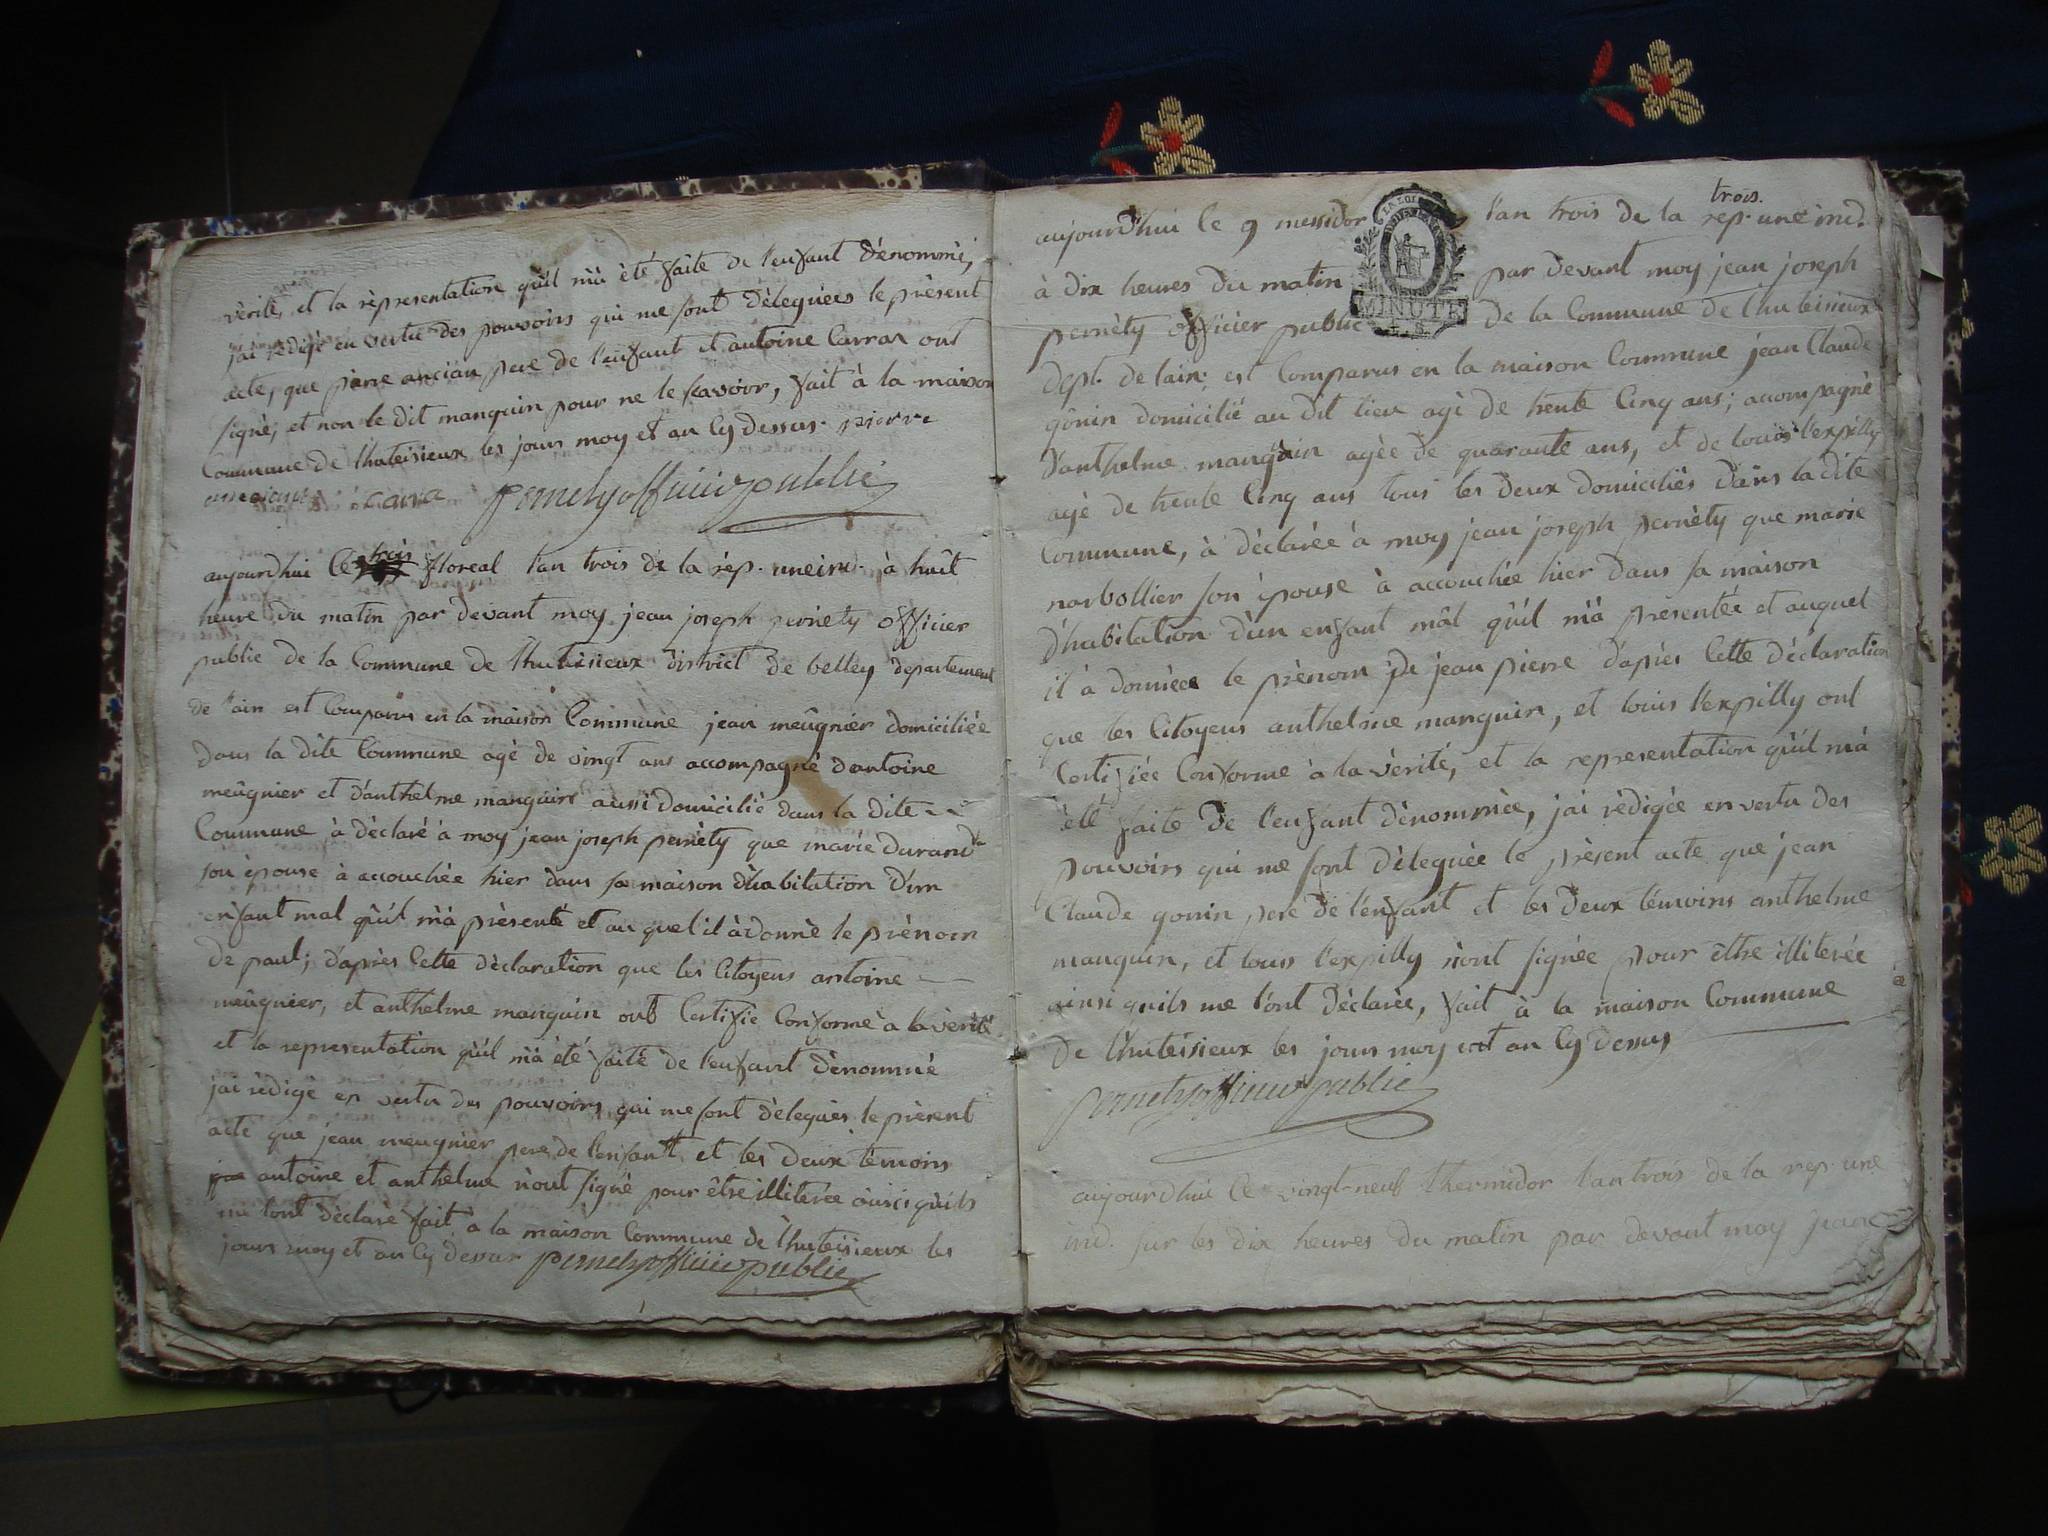 vèrité, et la rèpresentation qu'il m'à été faite de l'enfant dènommé,
j'ai rédigé en vertu des pouvoirs qui me sont dèleguées le prèsent
acte, que pierre ancian pere de l'enfant et antoine Carrar ont
signé, et non le dit manguin pour ne le scavoir, fait à la maison
Commune de lhuteisieux les jours moy et an Cy dessus. pierre
pernety officier public
aujourd'hui le trois floreal l'an trois de la rép. une ind. à huit
heure du matin par devant moy jean joseph perniety officier
public de la Commune de lhuteisieux district de belley departement
de l'ain est Comparus en la maison Commune jean meûgnier domiciliée
dans la dite Commune agé de vingt ans accompagné d'antoine
meûgnier et d'anthelme manguin aussi domicilié dans la dite
Commune à dèclaré à moy jean joseph perniety que marie durand
son épouse à accouchée hier dans sa maison d'habitation d'un
enfant mal qu'il m'à prèsenté et au quel il à donnè le prènom
de paul; d'après Cette dèclaration que les Citoyens antoine
meûgnier, et anthelme manguin ont Certifie Conforme à la vèrité
et la representation qu'il m'à été faite de l'enfant dènommé
j'ai rèdigé en vertu des pouvoirs qui me sont dèlegués le prèsent
acte que jean meugnier pere de l'enfant et les deux tèmoins
antoine et anthelme n'ont signé pour être illiterée ainsi qu'ils
me l'ont dèclaré fait à la maison Commune de lhuteisieux les
jours moy et an Cy dessus pernety officier public
trois.
aujourd'hui le 9 messidor l'an trois de la rep. une ind.
à dix heures du matin par devant moy jean joseph
perniety officier public de la Commune de lhuteisieux
MINUTE
dept. de l'ain; est Comparus en la maison Commune jean Claude
gônin domicilié au dit lieu agé de trente Cinq ans; accompagné
d'anthelme manguin agèe de quarante ans, et de louis l'expilly
agé de trente Cinq ans tous les deux domiciliés dans la dite
Commune, à dèclarée à moy jean joseph perniety que marie
narbollier son épouse à accouchée hier dans sa maison
d'habitation d'un enfant mâl qu'il m'à presentée et auquel
il à donnèe le prènom de jean pierre d'après Cette dèclaration
que les Citoyens anthelme manguin, et louis l'expilly ont
Certifiée Conforme à la vèrité, et la representation qu'il m'à
èté faite de l'enfant dènommèe, j'ai rèdigée en vertu des
pouvoirs qui me sont dèleguée le prèsent acte que jean
Claude gonin pere de l'enfant et les deux témoins anthelme
manguin, et louis l'expilly n'ont signée pour être illiterée
ainsi qu'ils me l'ont dèclarée, fait à la maison Commune
de lhuteisieux les jours moy et an Cy dessus
pernety officier public
aujourd'hui le vingt-neuf thermidor l'an trois de la rep. une
ind. sur les dix heures du matin par devant moy jean